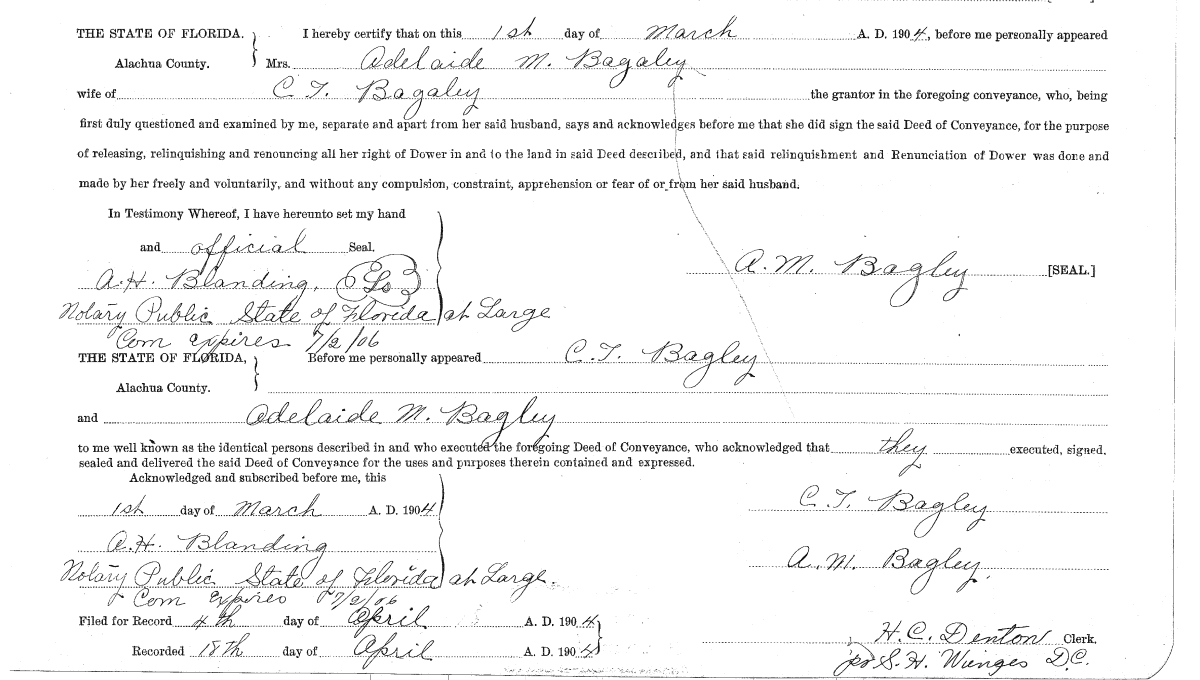 THE STATE OF FLORIDA. I hereby certify that on this 1st day of March A. D. 1904, before me personally appeared
Alachua County. Mrs. Adelaide M. Bagaley
wife of C. T. Bagaley the grantor in the foregoing conveyance, who, being
first duly questioned and examined by me, separate and apart from her said husband, says and acknowledges before me that she did sign the said Deed of Conveyance, for the purpose
of releasing, relinquishing and renouncing all her right of Dower in and to the land in said Deed described, and that said relinquishment and Renunciation of Dower was done and
made by her freely and voluntarily, and without any compulsion, constraint, apprehension or fear of or from her said husband.
In Testimony Whereof, I have hereunto set my hand
and official Seal.
A. M. Bagley [SEAL.]
A. H. Blanding.
Notary Public State of Florida at Large
Com expires 7/2/06
THE STATE OF FLORIDA, Before me personally appeared C. T. Bagley
Alachua County.
and Adelaide M. Bagley
to me well known as the identical persons described in and who executed the foregoing Deed of Conveyance, who acknowledged that they executed, signed.
sealed and delivered the said Deed of Conveyance for the uses and purposes therein contained and expressed.
Acknowledged and subscribed before me, this
1st day of March A. D. 1904
C. T. Bagley
A. H. Blanding
A. M. Bagley.
Notary Public State of Florida at Large.
Com expires 7/2/06
Filed for Record 4th day of April A. D. 1904
H. C. Denton Clerk.
Recorded 18th day of April A. D. 1904
per S. H. Wienges D.C.